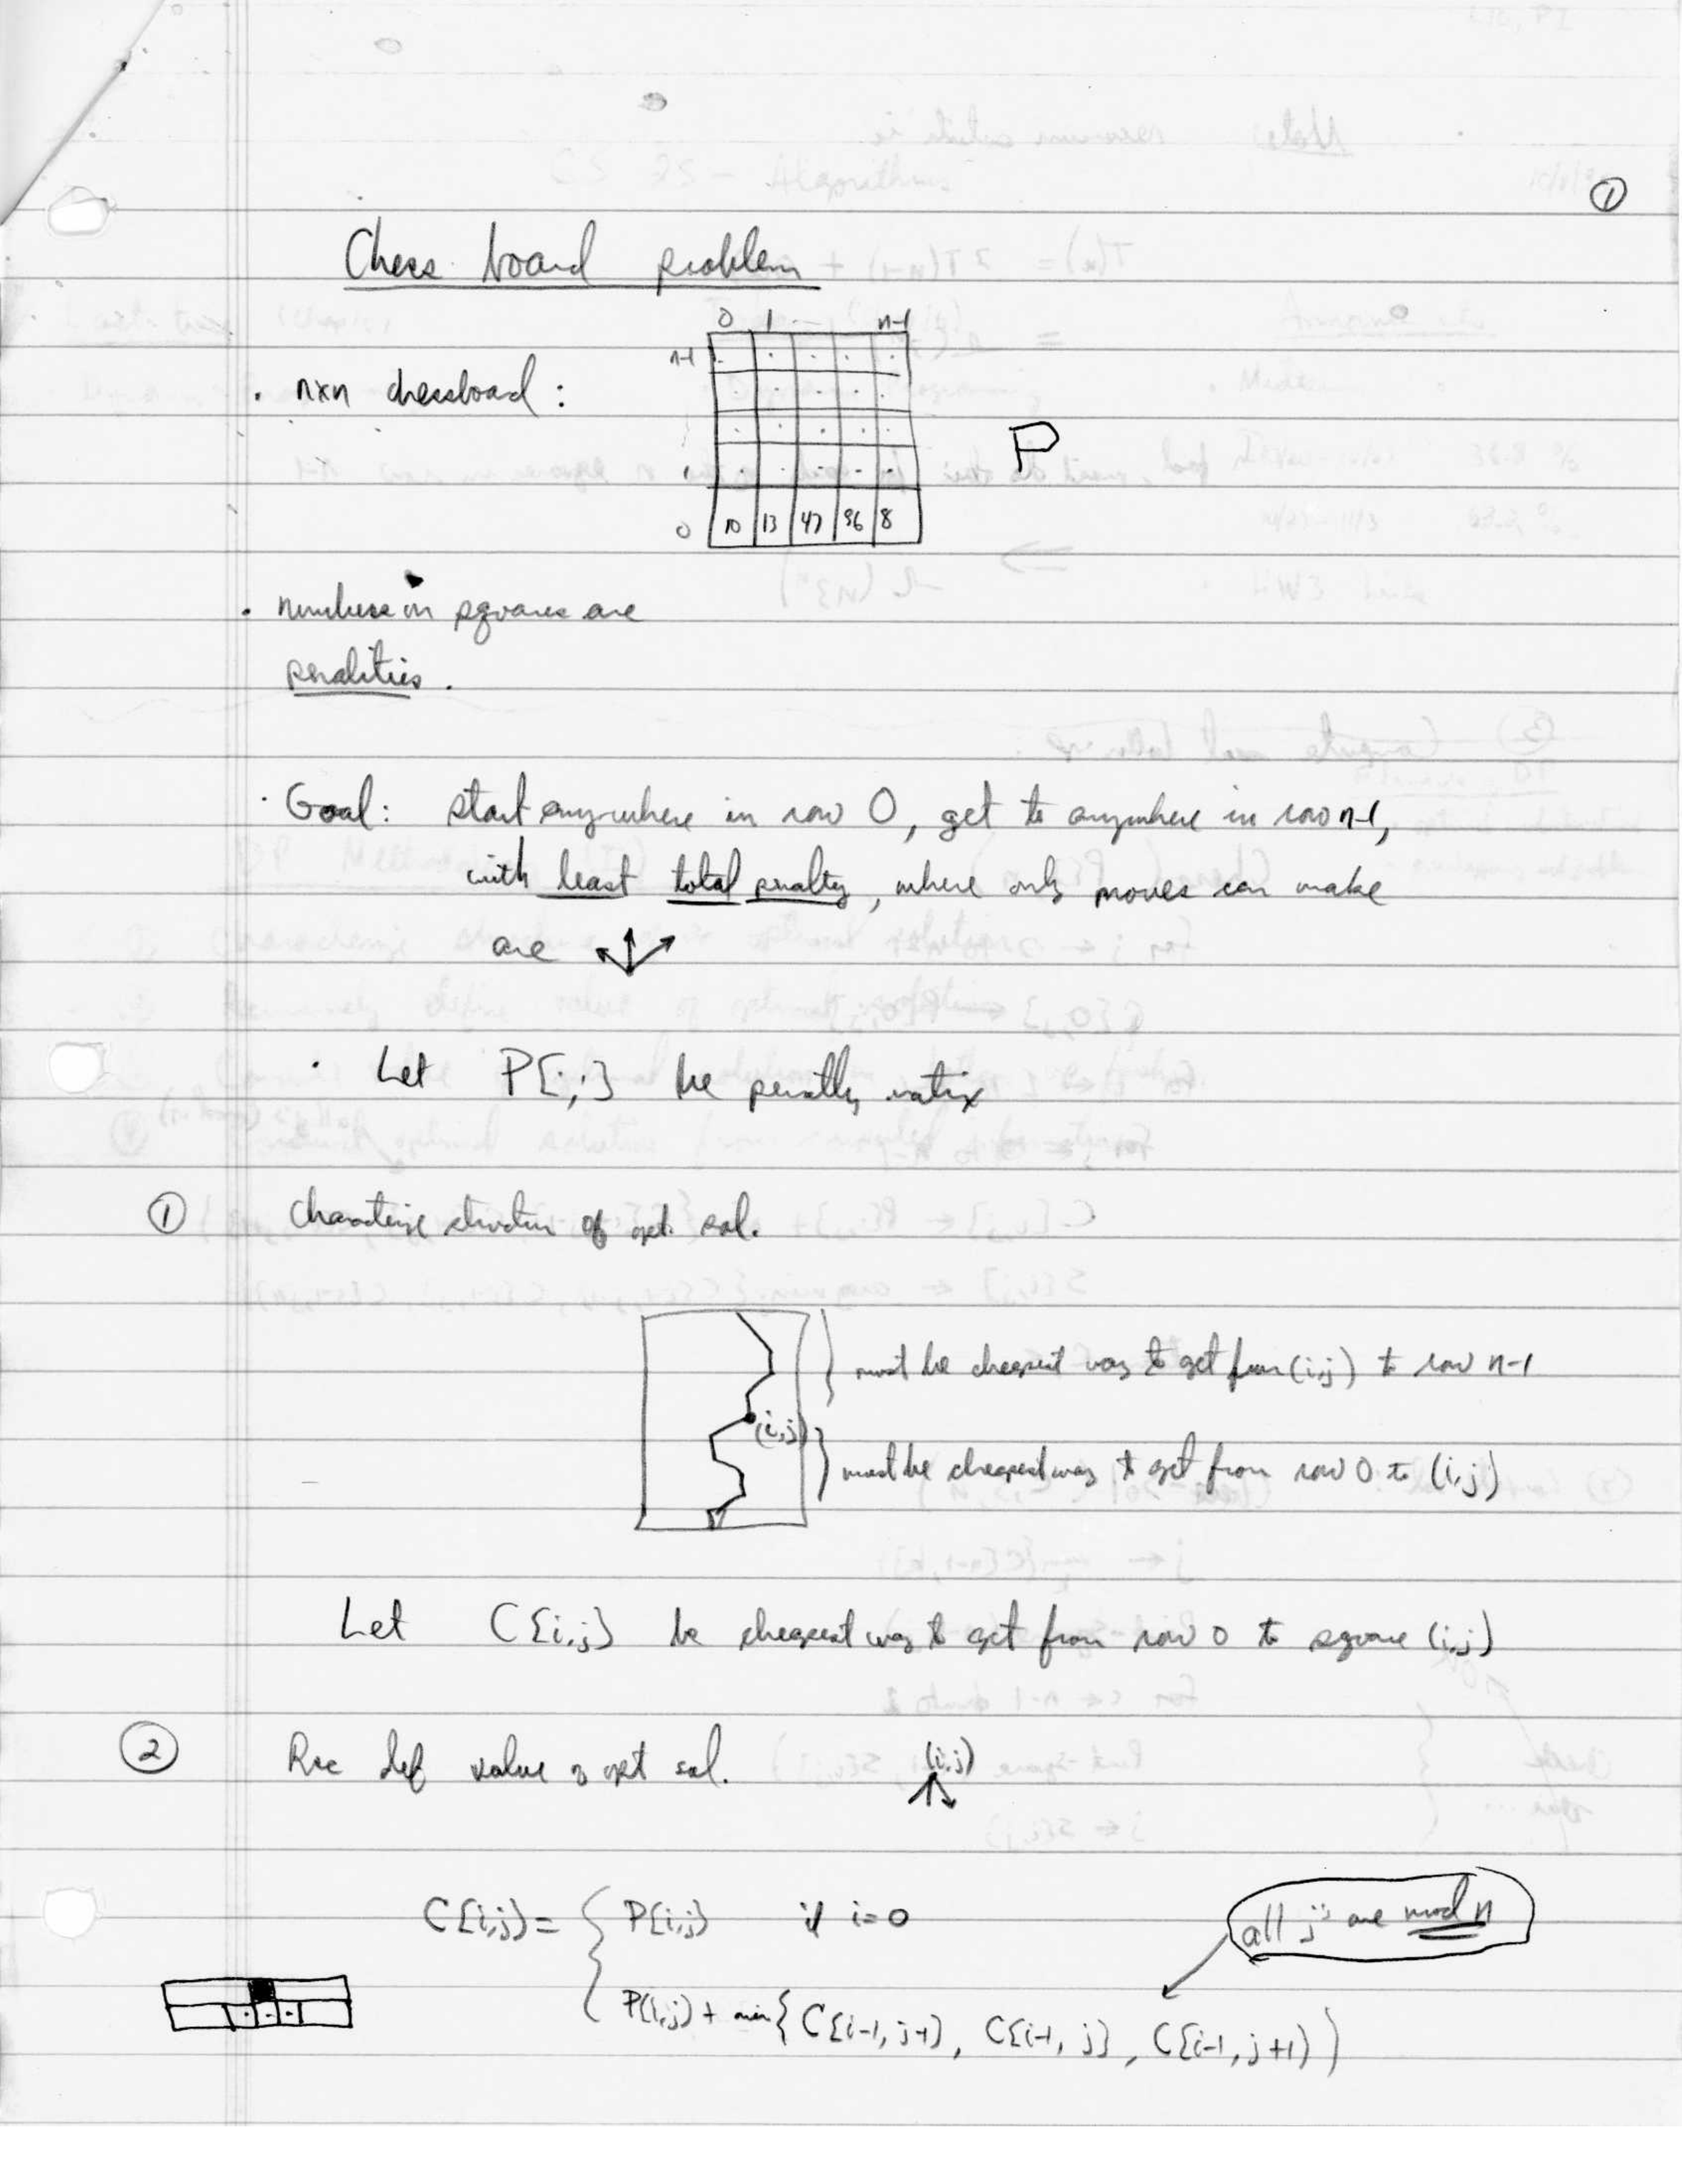 ①
Chess board problem
0 1 ... n-1
n-1
• nxn chessboard :
P
1
0 10 13 47 96 8
• numbers in squares are
penalities .
• Goal: start anywhere in row 0, get to anywhere in row n-1,
with least total penalty, where only moves can make
are
• Let P[i,j] be penalty matrix
① Characterize structure of opt. sol.
must be cheapest way to get from (i,j) to row n-1
(i,j)
must be cheapest way to get from row 0 to (i,j)
Let C[i,j] be cheapest way to get from row 0 to square (i,j)
② Rec def value of opt sol. (i,j)
C[i,j] = { P[i,j] if i=0
all j's are mod n
P[i,j] + min { C[i-1, j-1], C[i-1, j], C[i-1, j+1] }